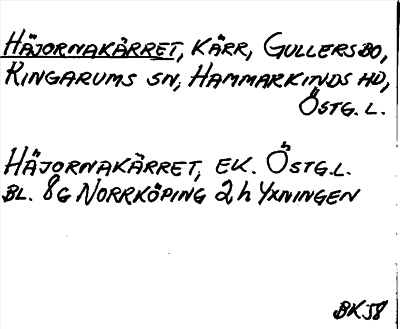 HÄJORNAKÄRRET, KÄRR, GULLERSBO,
RINGARUMS SN, HAMMARKINDS HD,
ÖSTG. L.
HÄJORNAKÄRRET, EK. ÖSTG.L.
BL. 8G NORRKÖPING 2h YXNINGEN
BKJ8